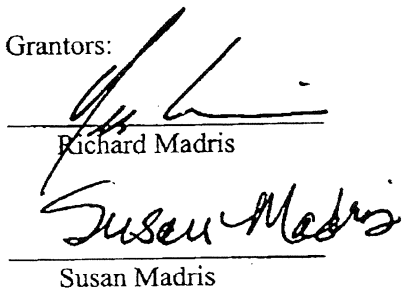 Grantors:
Richard Madris
Susan Madris
Susan Madris